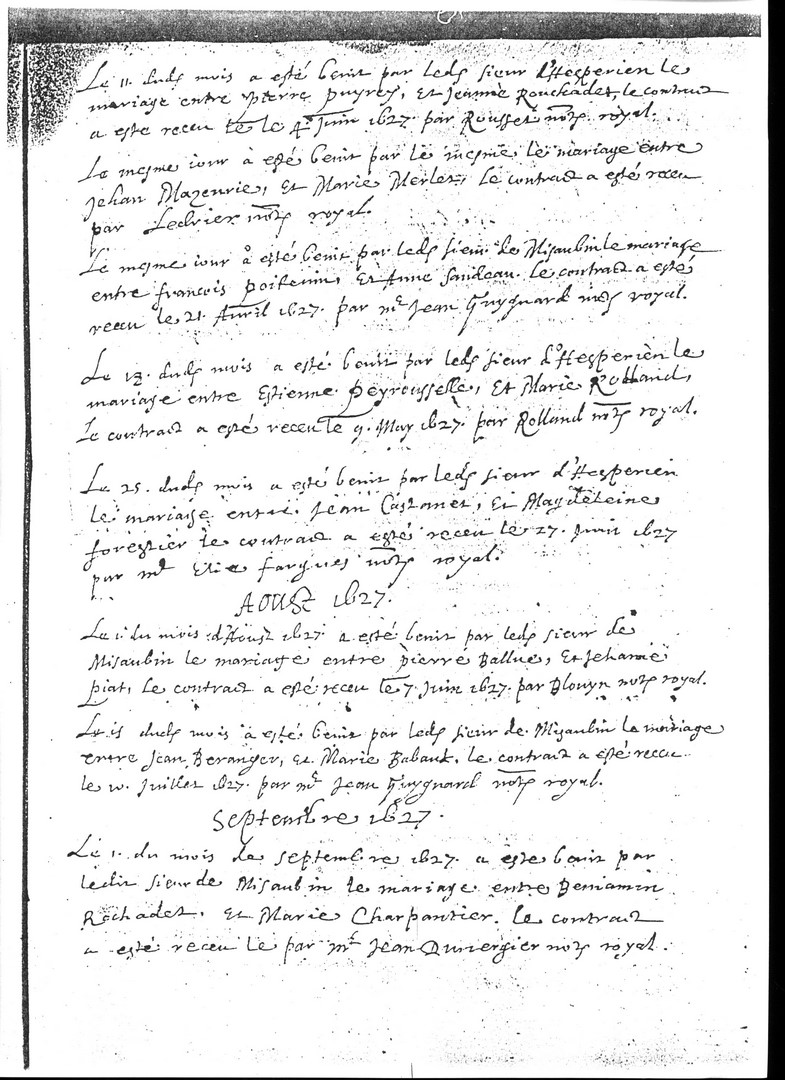 Le 11. dud. mois a esté benit par led. sieur d'Hesperien le
mariage entre Pierre Puyrey, Et Jeanne Rouchadet, le contract
a este receu le 4e Juin 1627. par Rousset notre royal.
Le mesme iour a esté benit par le mesme, le mariage entre
Jehan Mazeurie, Et Marie Merlet, Le contract a esté receu
par Ledrier notre royal.
Le mesme iour a esté benit par led. sieur de Misaubin le mariage
entre francois Poitevin, Et Anne Sandeau. le contract a esté
receu le 21. Avril 1627. par me Jean Guygnard notre royal.
Le 18. dud. mois a esté benit par led. sieur d'Hesperien le
mariage entre Estienne Peyrousselle, Et Marie Rolland,
Le contract a esté receu le 9. May 1627. par Rolland notre royal.
Le 25. dud. mois a esté benit par led. sieur d'Hesperien
le mariage entre Jean Castanet, Et Magdeleine
forestier le contract a esté receu le 27. Juin 1627
par me Elie fargues notre royal.
AOUST 1627.
Le 1. du mois d'Aoust 1627. a esté benit par led. sieur de
Misaubin le mariage entre pierre Ballue, Et Jehanne
Piat, Le contract a esté receu le 7. Juin 1627. par Blouyn notre royal.
Le 15 dud. mois a esté benit par led. sieur de Misaubin le mariage
entre Jean Beranger, Et Marie Babaud. le contract a esté receu
le 10. Juillet 1627. par me Jean Guygnard notre royal.
Septembre 1627.
Le 1. du mois de septembre 1627. a este benit par
ledit sieur de Misaubin le mariage entre Beniamin
Rochadet. Et Marie Charpantier. le contract
a esté receu le par me Jean Duvergier notre royal.